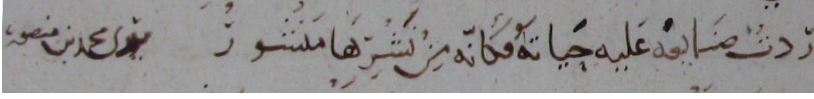 ردت صنايعه عليه حياته فكانه من نشرها منشور يرثي محمد بن منصور